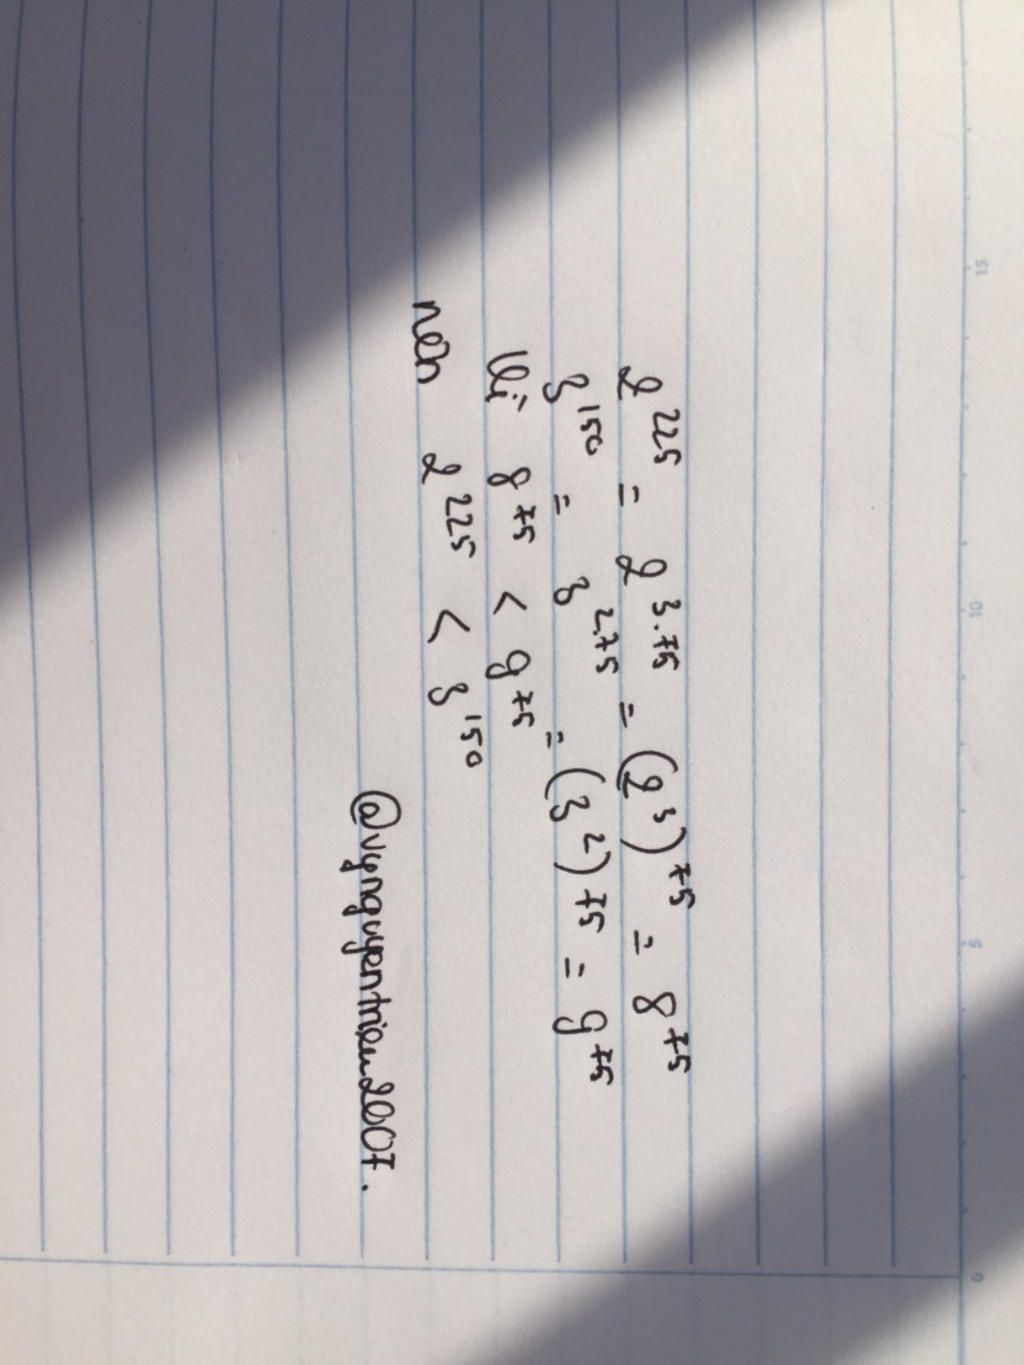 2²²⁵ = 2³·⁷⁵ = (2³)⁷⁵ = 8⁷⁵
3¹⁵⁰ = 3²·⁷⁵ = (3²)⁷⁵ = 9⁷⁵
Vì 8⁷⁵ < 9⁷⁵
nên 2²²⁵ < 3¹⁵⁰
@vynguyentrieu2007.
15
10
5
0